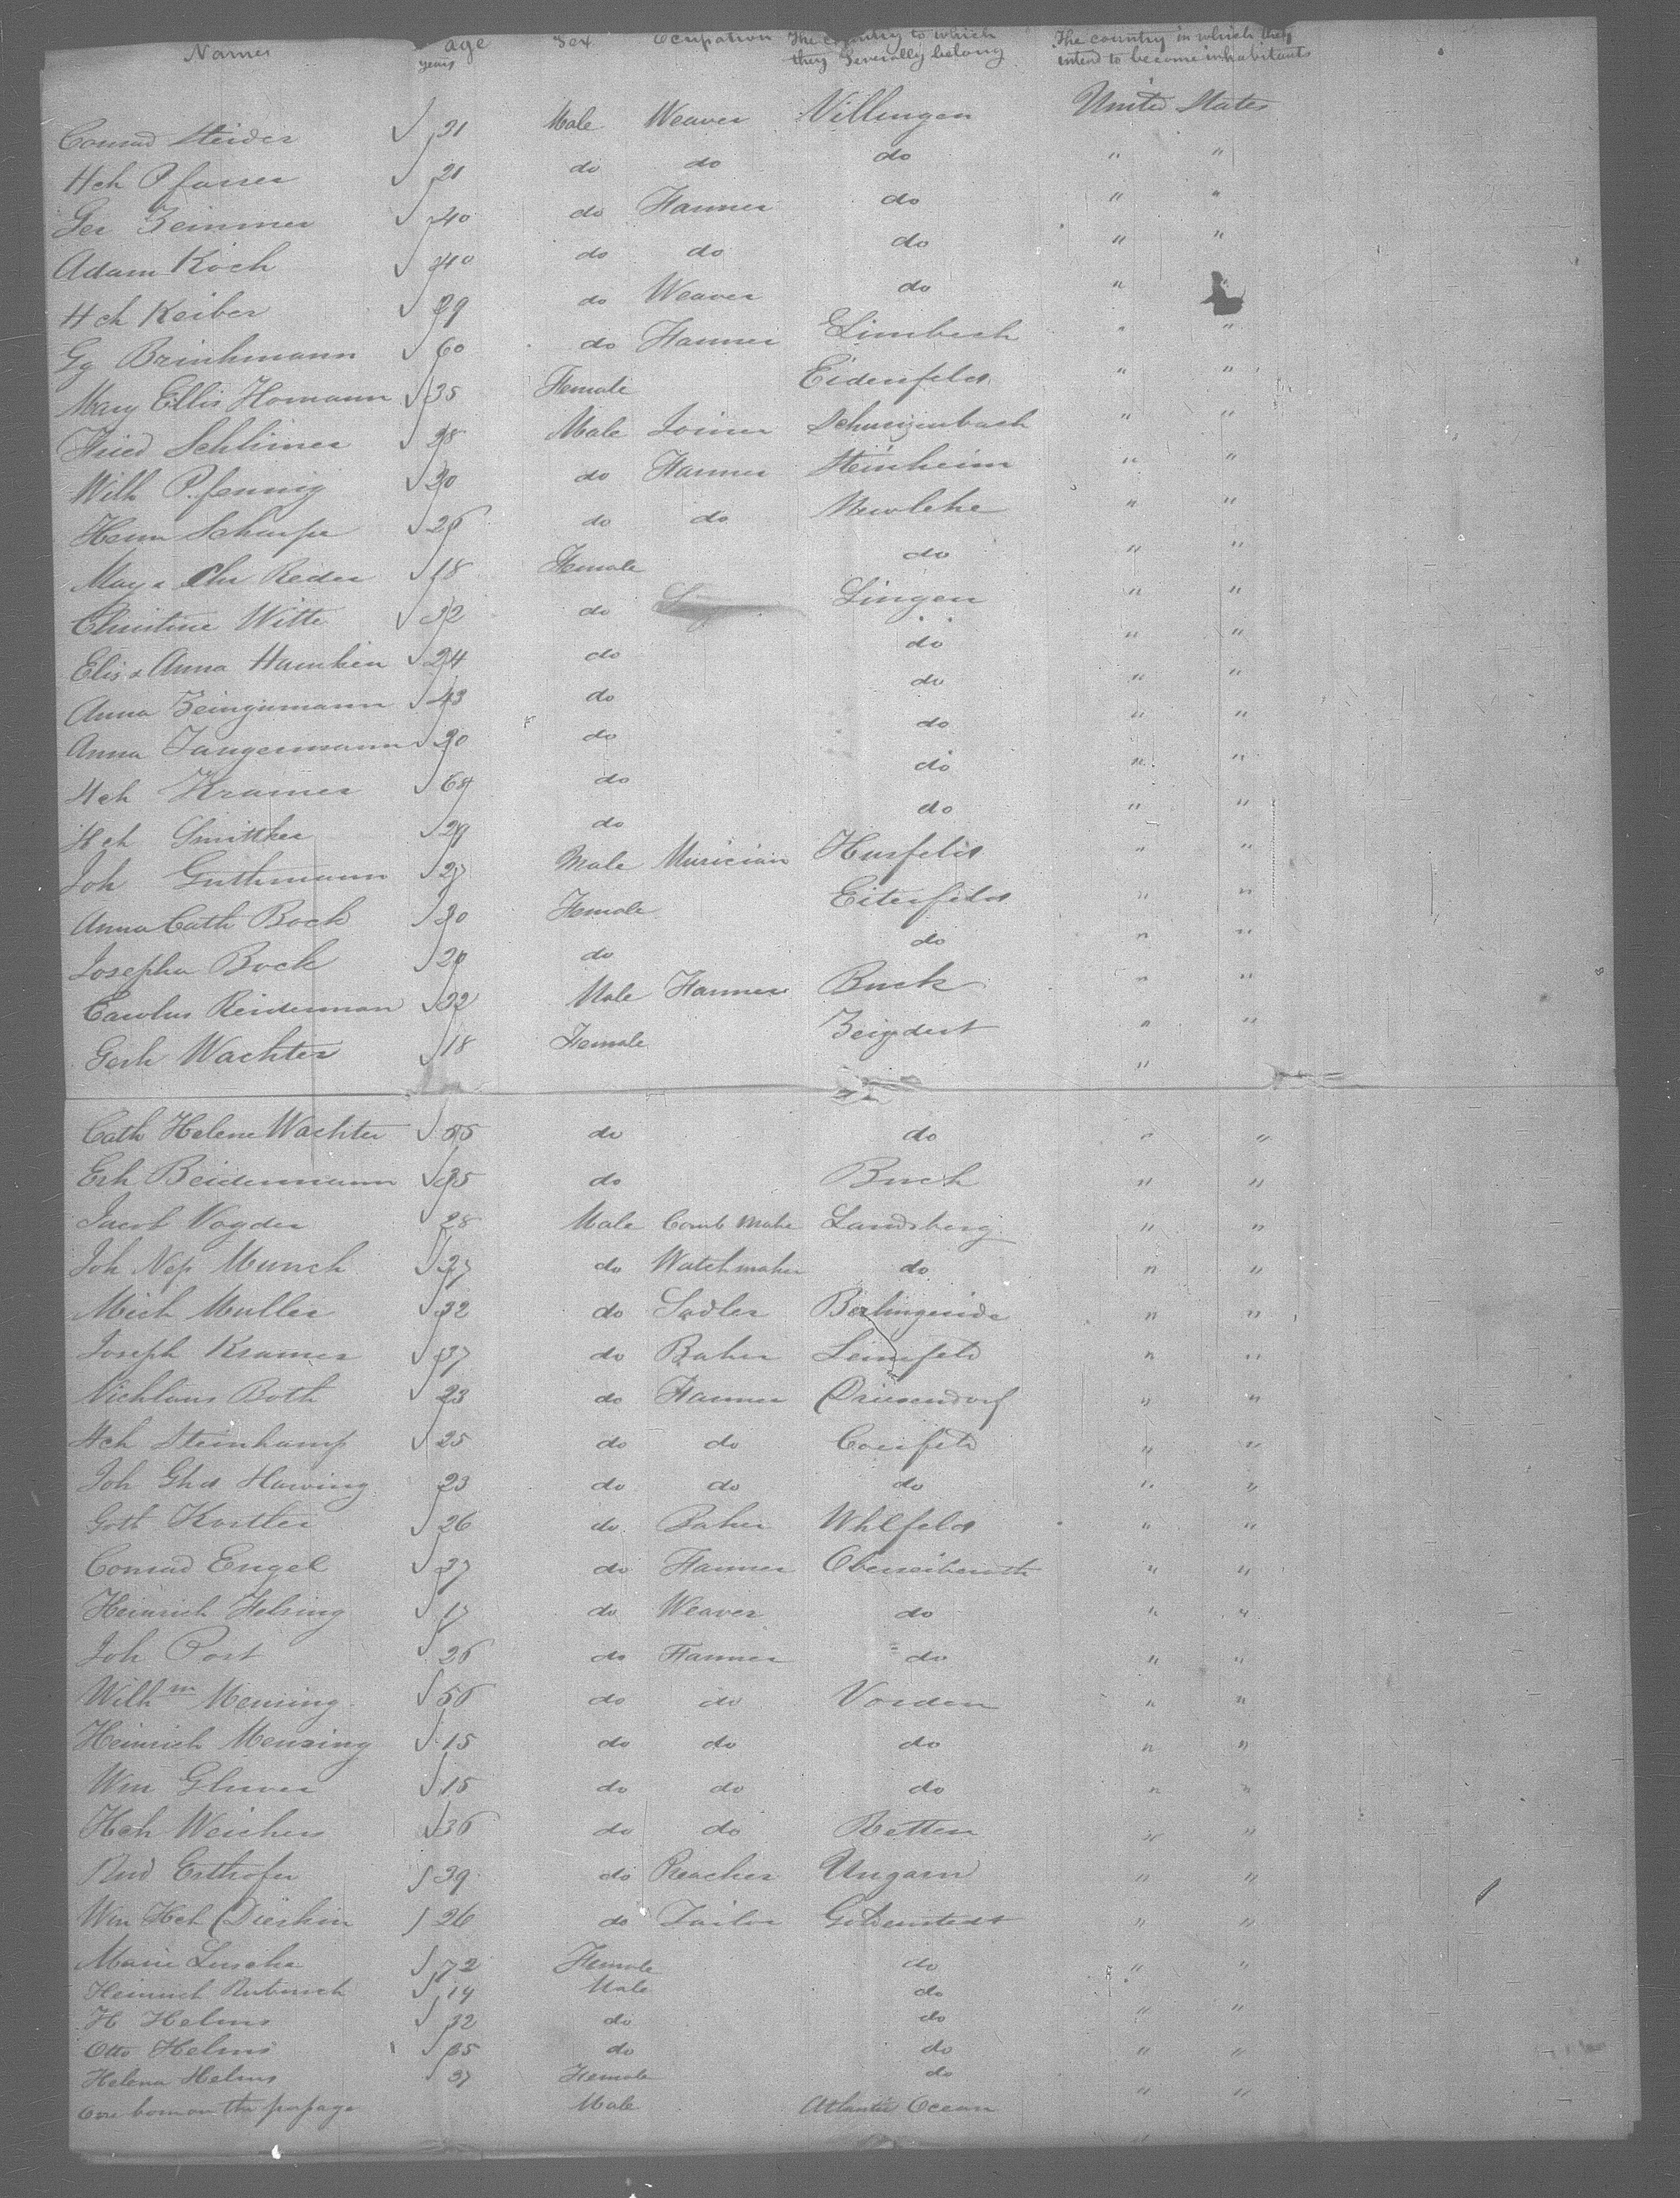 Names age years Sex Ocupation The country to which they Severally belong The country in which they intend to become inhabitants
Conrad Steider 21 Male Weaver Villingen United States
Hch Pfarrer 21 do do do " "
Ger Zeimmer 40 do Farmer do " "
Adam Koch 40 do do do " "
Hch Keiber 29 do Weaver do " "
Gg Brinkmann 60 do Farmer Limbach " "
Mary Ellis Homann 35 Female Eidenfeld " "
Fried Schlimer 28 Male Joiner Schweizenbach " "
Wilh Pfennig 30 do Farmer Steinheim " "
Herm Scharpe 26 do do " "
Chr Reder 18 Female do " "
Christine Witte 22 do Lingen " "
Elis & Anna Hamkin 24 do do " "
Anna 43 do do " "
Anna Tangermann 20 do do " "
Hch Kramer 64 do do " "
Hch Smitther 29 do do " "
Joh Guthmann 27 Male Musician Husfeld " "
Anna Cath Bock 30 Female Eiterfeld " "
Josepha Bock 20 do do " "
Carolus Reiderman 22 Male Farmer Buck " "
Gesh Wachter 18 Female "
Cath Helene Wachter 55 do do " "
Esh Beidermann 35 do Buch " "
Jacob Vogder 28 Male Comb Make Landsberg " "
Joh Nep Munch 27 do Watchmaker do " "
Mich Muller 32 do Sadler " "
Joseph Kramer 37 do Baker Leimfeld " "
Nichlaus Both 23 do Farmer Driesendorf " "
Hch Steinkamp 25 do do Coesfeld " "
Joh Ghd Hawing 23 do do do " "
Gott Kostler 26 do Baker Uhlfeld " "
Conrad Engel 37 do Farmer " "
Heinrich Helsing 17 do Weaver do " "
Joh Post 26 do Farmer do " "
Wilhm Mensing 56 do do Vorden " "
Heinrich Mensing 15 do do do " "
Wm 15 do do do " "
Hch Weichers 36 do do Retten " "
Rud Erthofer 39 do Preacher Ungarn " "
Wm Hch Dierkin 26 do Tailor Goldenstedt " "
Marie Luscha 72 Female do " "
Heinrich 14 Male do
H Helms 32 do do " "
Otto Helms 35 do do " "
Helena Helms 37 Female do
One born on the passage Male Atlantic Ocean " "